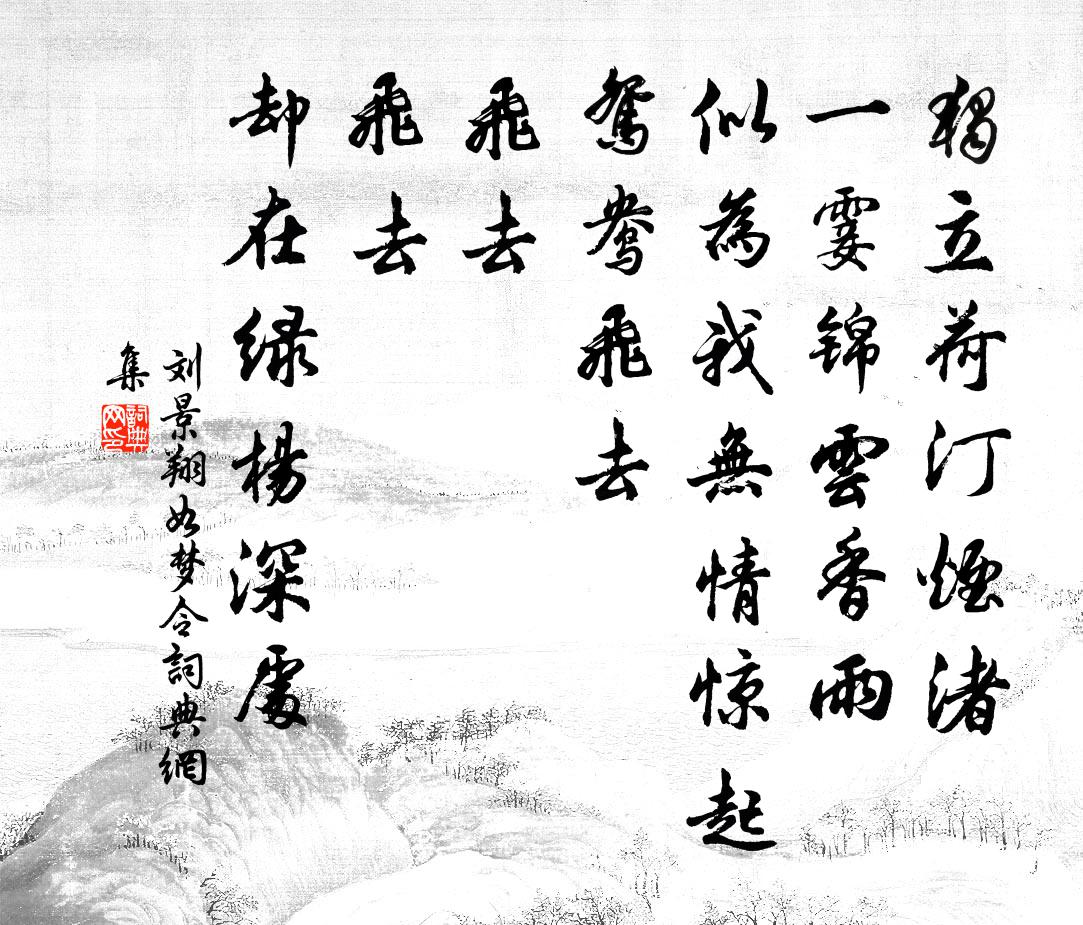 獨立荷汀煙渚
一霎錦雲香雨
似為我無情惊起
鴛鴦飛去
飛去
飛去
却在绿楊深處
刘景翔如梦令詞典網
集
詞典网印